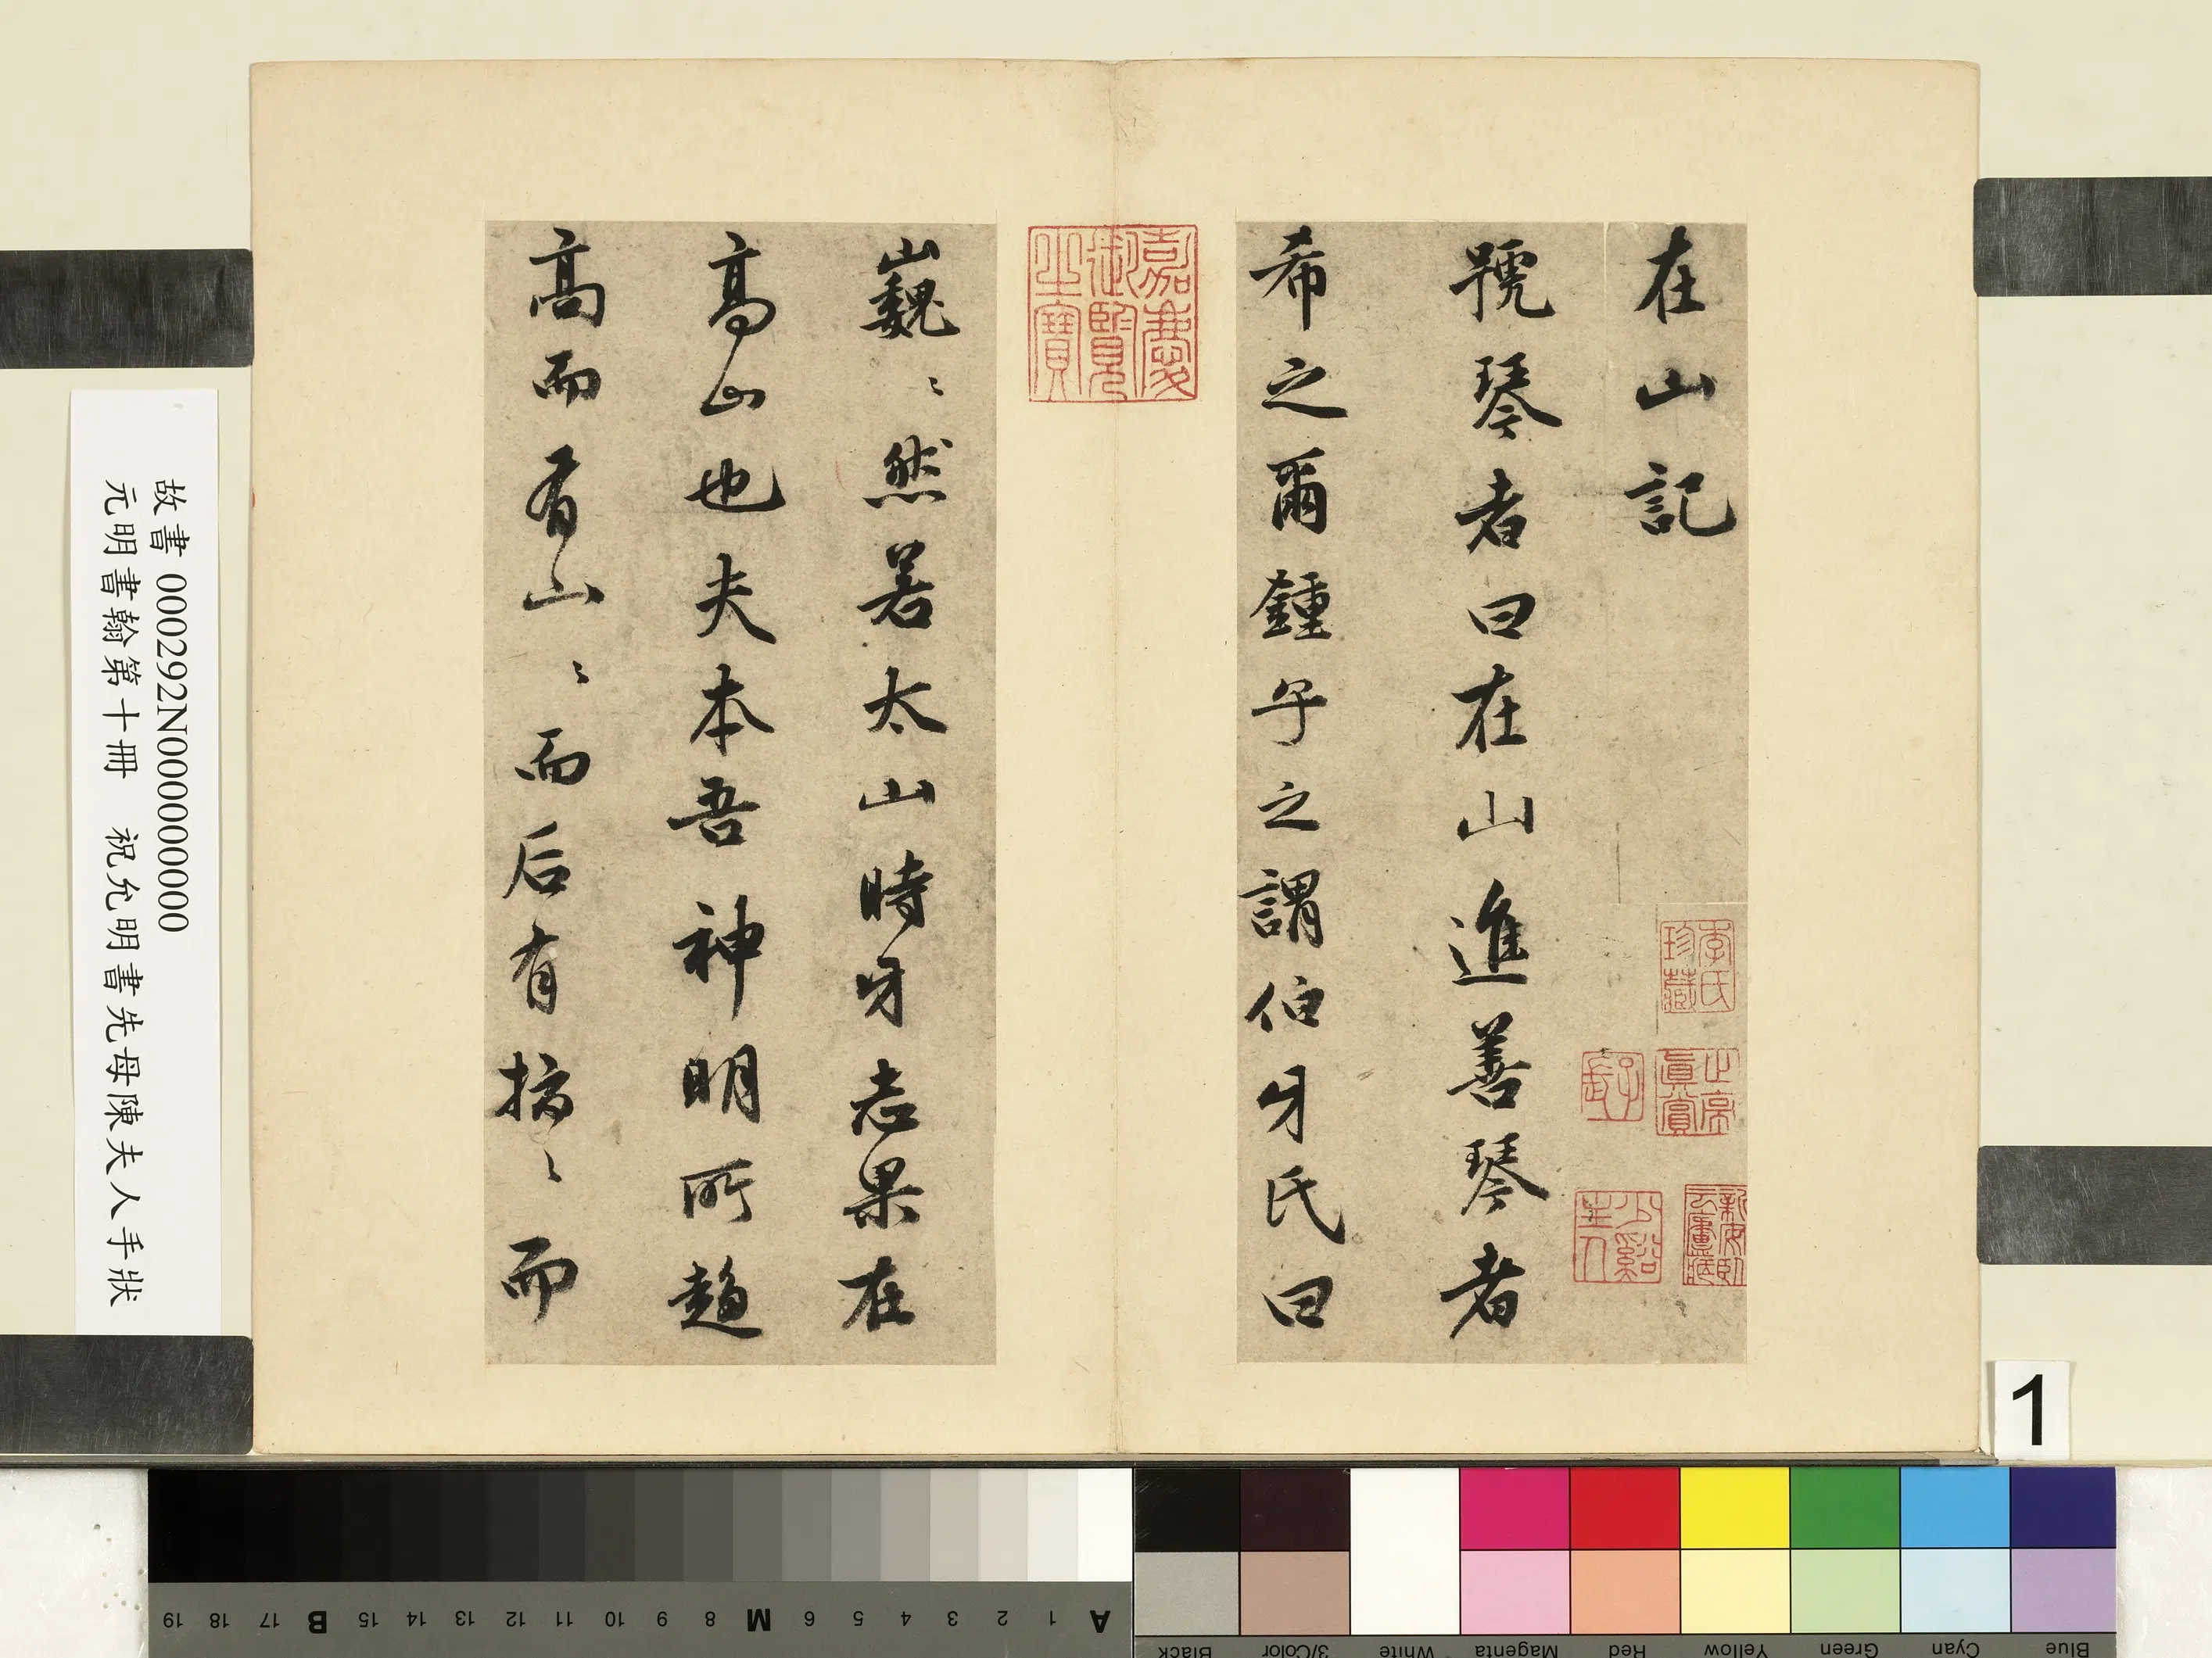 在山記
號琴者曰在山進善琴者
希之爾鍾子之謂伯牙氏曰
巍〻然若太山時牙志果在
高山也夫本吾神明所趨
高而有山〻而后有擣〻而
嘉慶御覽之寶
李氏珍藏
真賞
故書 000292N000000000
元明書翰第十冊 祝允明書先母陳夫人手狀
1
A 1 2 3 4 5 6 M 8 9 10 11 12 13 14 15 B 17 18 19
Black 3/Color White Magenta Red Yellow Green Cyan Blue